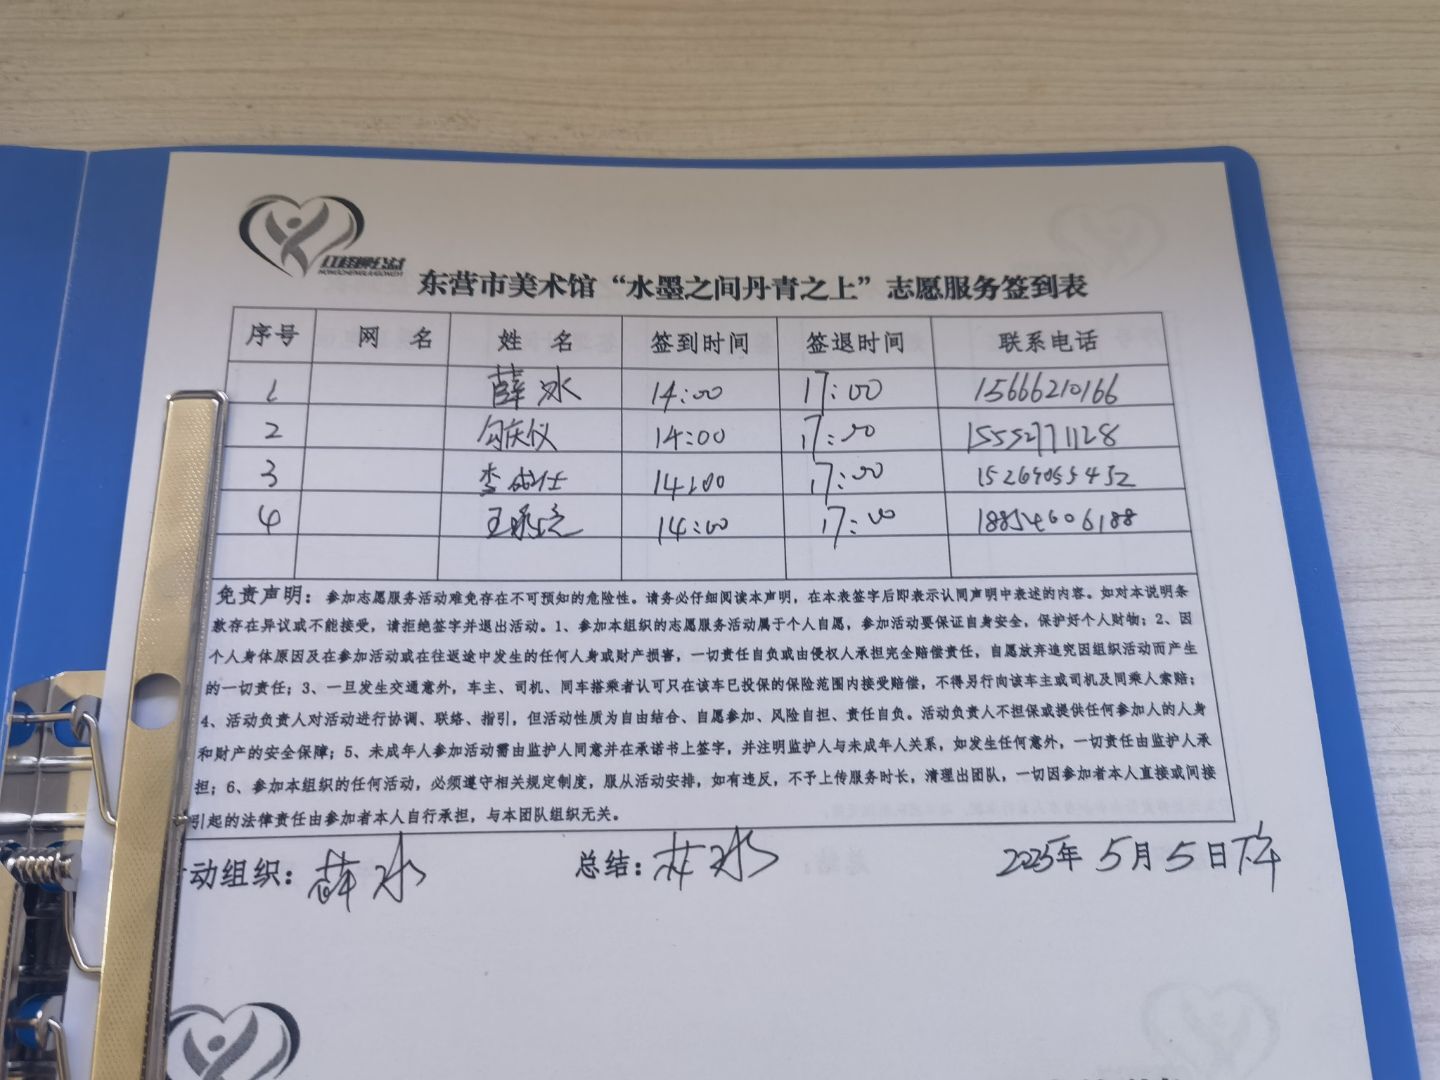 红橙颗公益
HONGCHENGKEGONGYI
东营市美术馆“水墨之间丹青之上”志愿服务签到表
序号 网 名 姓 名 签到时间 签退时间 联系电话
1 薛冰 14:00 17:00 15666210166
2 14:00 17:00 15552771128
3 李成仕 14:00 17:00 15269055452
4 14:00 17:00 18854606188
免责声明：参加志愿服务活动难免存在不可预知的危险性。请务必仔细阅读本声明，在本表签字后即表示认同声明中表述的内容。如对本说明条
款存在异议或不能接受，请拒绝签字并退出活动。1、参加本组织的志愿服务活动属于个人自愿，参加活动要保证自身安全，保护好个人财物；2、因
个人身体原因及在参加活动或在往返途中发生的任何人身或财产损害，一切责任自负或由侵权人承担完全赔偿责任，自愿放弃追究因组织活动而产生
的一切责任；3、一旦发生交通意外，车主、司机、同车搭乘者认可只在该车已投保的保险范围内接受赔偿，不得另行向该车主或司机及同乘人索赔；
4、活动负责人对活动进行协调、联络、指引，但活动性质为自由结合、自愿参加、风险自担、责任自负。活动负责人不担保或提供任何参加人的人身
和财产的安全保障；5、未成年人参加活动需由监护人同意并在承诺书上签字，并注明监护人与未成年人关系，如发生任何意外，一切责任由监护人承
担；6、参加本组织的任何活动，必须遵守相关规定制度，服从活动安排，如有违反，不予上传服务时长，清理出团队，一切因参加者本人直接或间接
引起的法律责任由参加者本人自行承担，与本团队组织无关。
动组织：薛冰 总结：薛冰 2025年5月5日下午